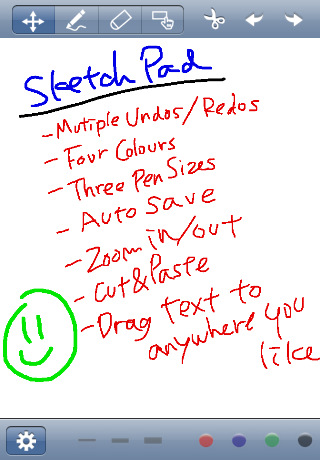 Sketch Pad
- Mutiple Undos/Redos
- Four Colours
- Three Pen Sizes
- Auto Save
- Zoom in/out
- Cut & Paste
- Drag text to
anywhere you
like